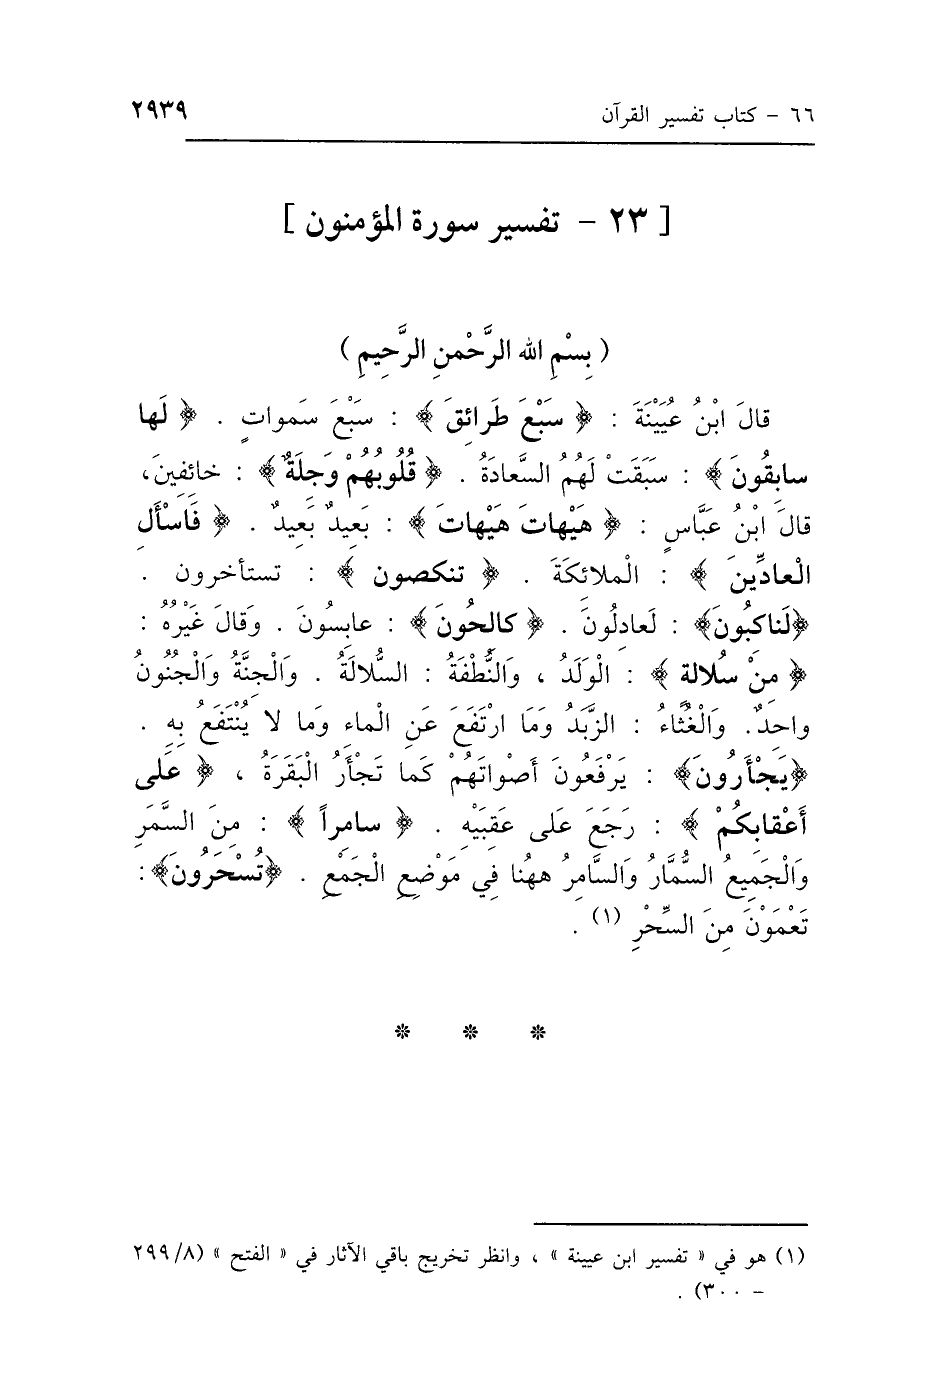 ٦٦ - كتاب تفسير القرآن ٢٩٣٩
[ ٢٣ - تفسير سورة المؤمنون ]
( بِسْمِ اللهِ الرَّحْمنِ الرَّحِيمِ )
قالَ ابْنُ عُيَيْنَةَ : ﴿ سَبْعَ طَرائِقَ ﴾ : سَبْعَ سَموات . ﴿ لَها
سابِقُونَ ﴾ : سَبَقَتْ لَهُمُ السَّعادَةُ . ﴿ قُلُوبُهُمْ وَجِلَةٌ ﴾ : خائِفِينَ،
قالَ ابْنُ عَبَّاسٍ : ﴿ هَيْهاتَ هَيْهاتَ ﴾ : بَعِيدٌ بَعِيدٌ . ﴿ فَاسْأَلِ
الْعادِّينَ ﴾ : الْملائِكَةَ . ﴿ تنكصون ﴾ : تستأخرون .
﴿لَناكِبُونَ﴾ : لَعادِلُونَ . ﴿ كالِحُونَ ﴾ : عابِسُونَ . وَقالَ غَيْرُهُ :
﴿ مِنْ سُلالة ﴾ : الْوَلَدُ ، وَالنُّطْفَةُ : السُّلالَةُ . وَالْجِنَّةُ وَالْجُنُونُ
واحِدٌ. وَالْغُثاءُ : الزَّبَدُ وَمَا ارْتَفَعَ عَنِ الْماءِ وَما لا يُنْتَفَعُ بِهِ .
﴿يَجْأَرُونَ﴾ : يَرْفَعُونَ أَصْواتَهُمْ كَما تَجْأَرُ الْبَقَرَةُ ، ﴿ عَلَى
أَعْقابِكُمْ ﴾ : رَجَعَ عَلى عَقِبَيْهِ . ﴿ سامِراً ﴾ : مِنَ السَّمَرِ
وَالْجَمِيعُ السُّمَّارُ وَالسَّامِرُ ههُنا فِي مَوْضِعِ الْجَمْعِ . ﴿تُسْحَرُونَ﴾:
تَعْمَوْنَ مِنَ السِّحْرِ (١) .
* * *
(١) هو في « تفسير ابن عيينة » ، وانظر تخريج باقي الآثار في « الفتح » (٢٩٩/٨
- ٣٠٠) .